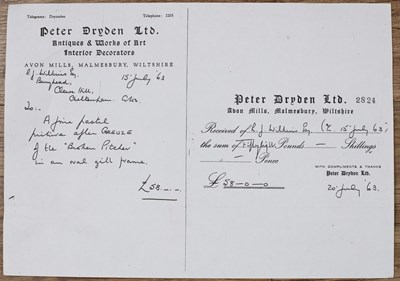 Telegrams: Drywolan
Telephone: 2205
Peter Dryden Ltd.
Antiques & Works of Art
Interior Decorators
AVON MILLS, MALMESBURY, WILTSHIRE
J. Williams Esq. 15 July '63
Cleeve Hill,
Cheltenham Glos.
To..
A fine pastel
picture after GREUZE
of the "Broken Pitcher"
in an oval gilt frame.
£58.-.-
Peter Dryden Ltd. 2824
Avon Mills, Malmesbury, Wiltshire
Received of J Williams Esq 15 July '63
the sum of Fifty eight Pounds — Shillings
— Pence
WITH COMPLIMENTS & THANKS
£ 58-0-0 Peter Dryden Ltd.
20 July '63.